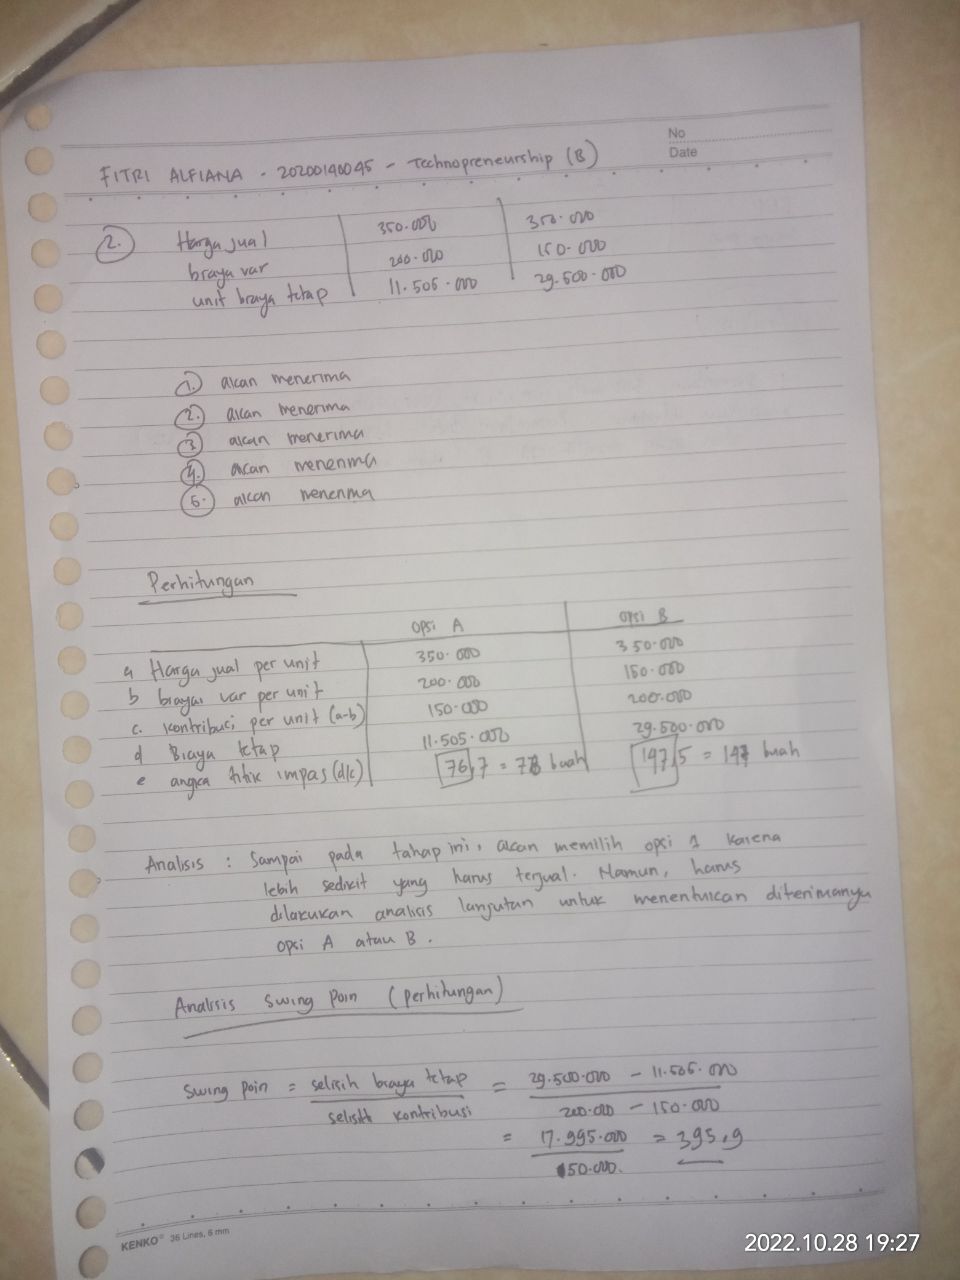 No
Date
FITRI ALFIANA - 20200140045 - Technopreneurship (B)
2. Harga jual 350.000 350.000
biaya var 200.000 150.000
unit biaya tetap 11.505.000 29.500.000
1. akan menerima
2. akan menerima
3 akan menerima
4. akan menerima
5. akan menerima
Perhitungan
opsi A opsi B
a Harga jual per unit 350.000 350.000
b biaya var per unit 200.000 150.000
c. kontribuci per unit (a-b) 150.000 200.000
d Biaya tetap 11.505.000 29.500.000
e angka titik impas (d/c) 76,7 = 78 buah 147,5 = 147 buah
Analisis : Sampai pada tahap ini, akan memilih opsi 1 karena
lebih sedikit yang harus terjual. Namun, harus
dilakukan analisis lanjutan untuk menentukan diterimanya
opsi A atau B.
Analisis swing poin (perhitungan)
Swing poin = selisih biaya tetap = 29.500.000 - 11.505.000
selisih kontribusi 200.000 - 150.000
= 17.995.000 = 395,9
50.000.
KENKO® 36 Lines, 6 mm
2022.10.28 19:27